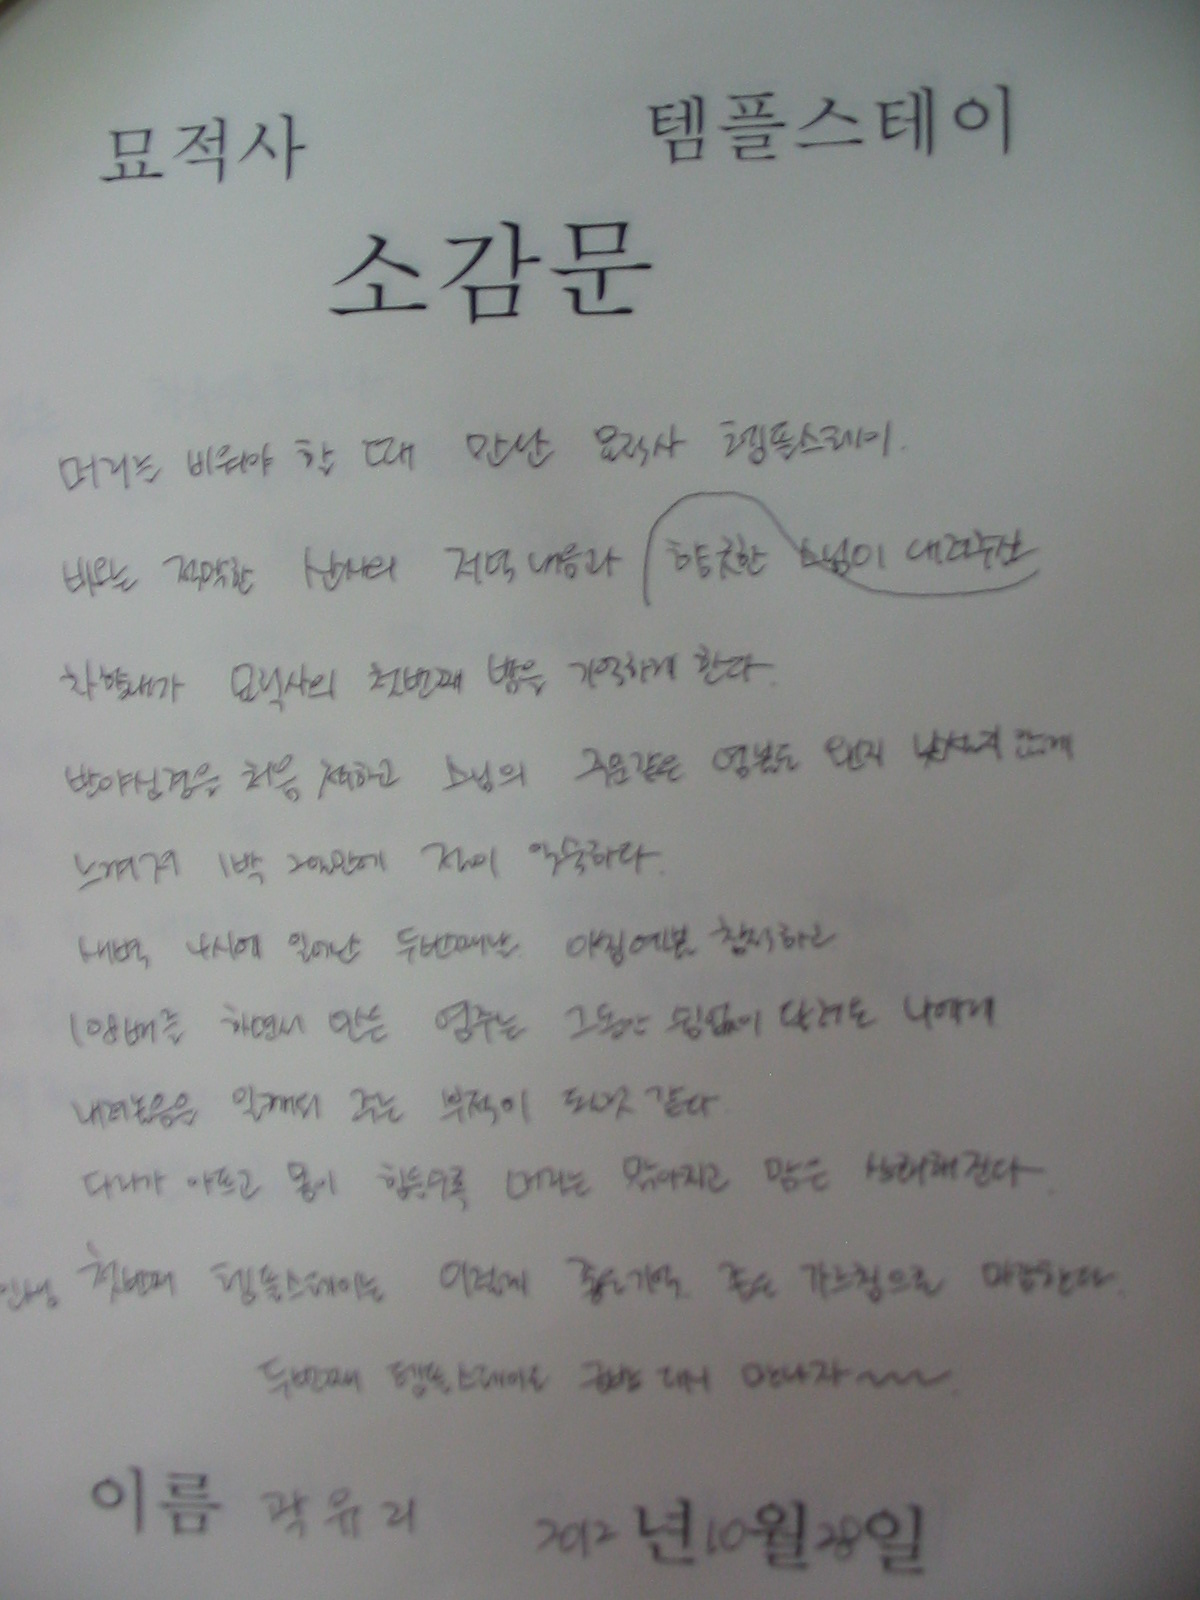 묘적사 템플스테이
소감문
머리를 비워야 할 때 만난 묘적사 템플스테이.
비오는 적막한 산사의 저녁 내음과 향긋한 스님이 내려주신
차향내가 묘적사의 첫번째 밤을 기억하게 한다.
반야심경을 처음 접하고 스님의 주문같은 염불도 왠지 낯설지 않게
느껴져 1박 2일만에 절이 익숙하다.
새벽 4시에 일어난 두번째날 아침예불 참석하고
108배를 하면서 만든 염주는 그동안 쉼없이 달려온 나에게
내려놓음을 일깨워 주는 부적이 된것 같다.
다리가 아프고 몸이 힘들수록 머리는 맑아지고 맘은 상쾌해진다.
인생 첫번째 템플스테이는 이렇게 좋은기억 좋은 느낌으로 마감한다.
두번째 템플스테이로 금방 다시 만나자~~~.
이름 곽유리 2012년 10월 28일